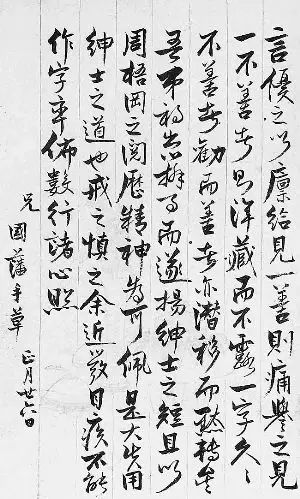 言優之以廩給見一善則痛譽之見
一不善者則渾藏而不露一字久久
不善者勸而善者亦潛移而默轉矣
吾弟初出辦事而遂揚紳士之短且以
周梧岡之閱歷精神為可佩是大失用
紳士之道也戒之慎之余近發目疾不能
作字率佈數行諸心照
兄國藩手草 正月廿六日